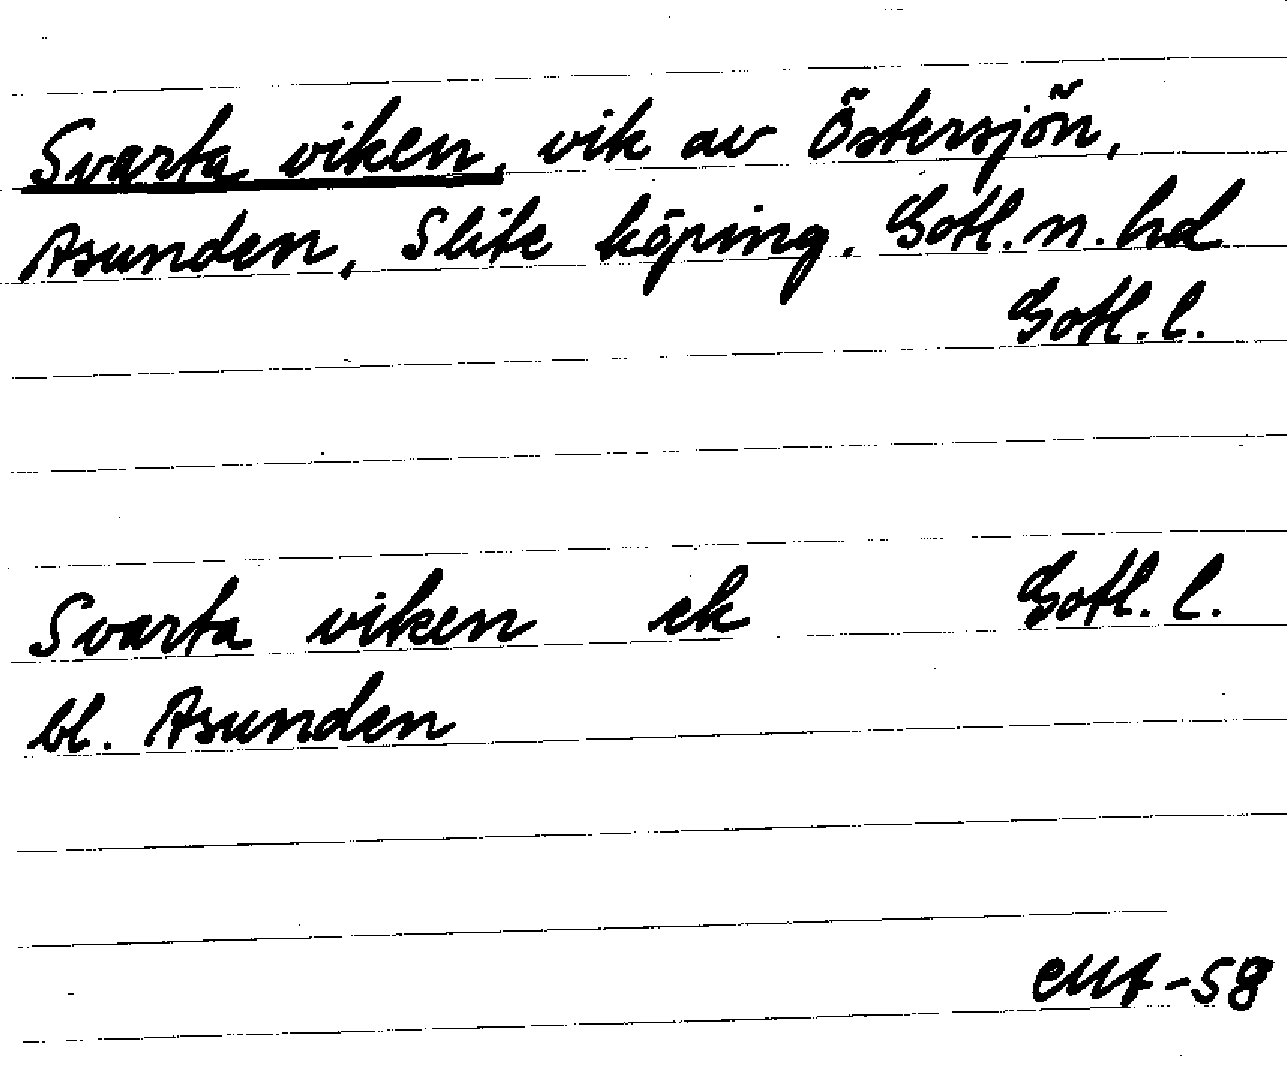 Svarta viken, vik av Östersjön,
Asunden, Slite köping. Gotl. n. hd
Gotl. l.
Svarta viken ek Gotl. l.
bl. Asunden